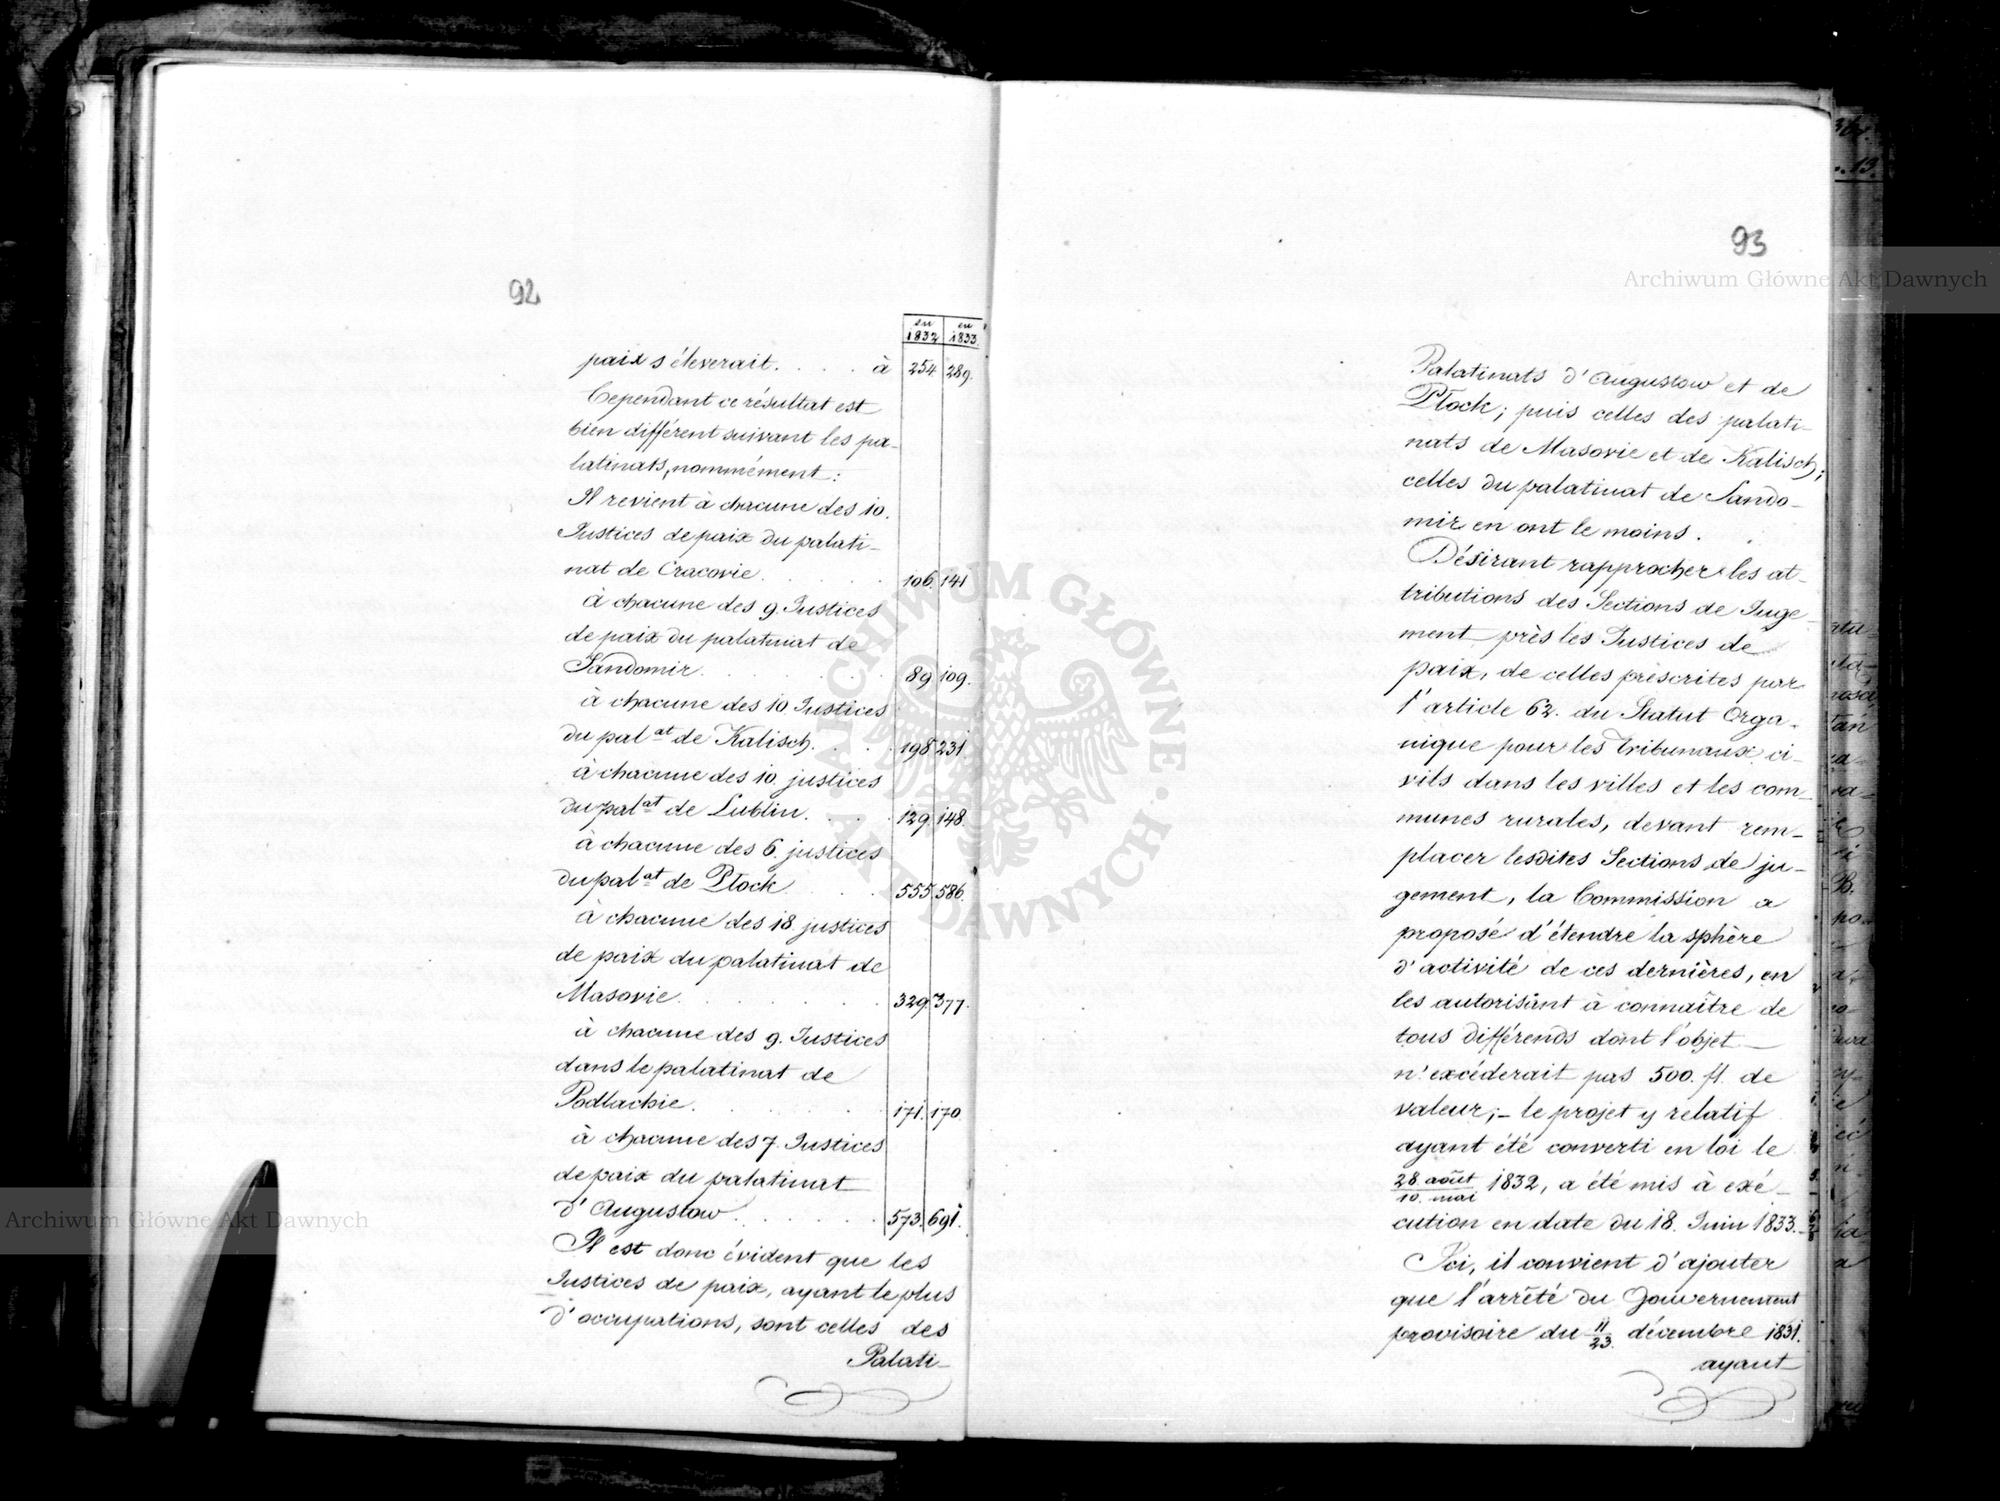 92
en 1832 en 1833.
paix s'éleverait. . . . . à 254 289.
Cependant ce résultat est
bien différent suivant les pa-
latinats, nommément:
Il revient à chacune des 10.
Justices de paix du palati-
nat de Cracovie. . . . 106. 141
à chacune des 9. Justices
de paix du palatinat de
Sandomir. . . . . . 89 109.
à chacune des 10. Justices
du pal.at de Kalisch. . . . 198 231.
à chacune des 10. justices
du pal.at de Lublin. . . . 129. 148.
à chacune des 6. justices
du pal.at de Plock . . . . 555 586.
à chacune des 18. justices
de paix du palatinat de
Masovie. . . . . . . 329. 377.
à chacune des 9. Justices
dans le palatinat de
Podlachie. . . . . . 171. 170.
à chacune des 7. Justices
de paix du palatinat
d'Augustow. . . . . . 573. 691.
Il est donc évident que les
Justices de paix, ayant le plus
d'occupations, sont celles des
Palati-
93
Palatinats d'Augustow et de
Plock; puis celles des palati-
nats de Masovie et de Kalisch;
celles du palatinat de Sando-
mir en ont le moins.
Désirant rapprocher les at-
tributions des Sections de Juge-
ment près les Justices de
paix, de celles préscrites par
l'article 62. du Statut Orga-
nique pour les Tribunaux ci-
vils dans les villes et les com-
munes rurales, devant rem-
placer lesdites Sections de ju-
gement, la Commission a
proposé d'étendre la sphère
d'activité de ces dernières, en
les autorisant à connaître de
tous différends dont l'objet
n'excéderait pas 500. fl. de
valeur;- le projet y relatif
ayant été converti en loi le
28. août / 10. mai 1832, a été mis à exé-
cution en date du 18. Juin 1833.-
Ici, il convient d'ajouter
que l'arrêté du Gouvernement
provisoire du 11/23. décembre 1831.
ayant
Archiwum Główne Akt Dawnych
Archiwum Główne Akt Dawnych
ARCHIWUM GŁÓWNE AKT DAWNYCH